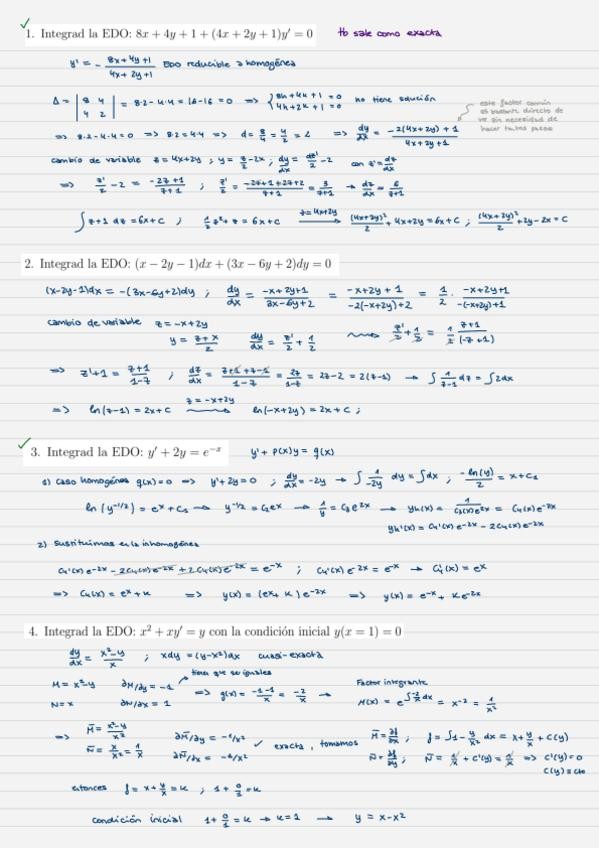 1. Integrad la EDO: 8x + 4y + 1 + (4x + 2y + 1)y' = 0 tb sale como exacta
y' = - 8x+4y+1 / 4x+2y+1 EDO reducible a homogénea
Δ = | 8 4 / 4 2 | = 8·2-4·4=16-16=0 => { 8h+4k+1=0 / 4h+2k+1=0 no tiene solución
este factor común es bastante directo de ver sin necesidad de hacer tantos pasos
=> 8·2-4·4=0 => 8·2=4·4 => d= 8/4 = 4/2 = 2 => dy/dx = -2(4x+2y)+1 / 4x+2y+1
cambio de variable z=4x+2y ; y= z/2 -2x ; dy/dx = z'/2 -2 con z'= dz/dx
=> z'/2 -2 = -2z+1 / z+1 ; z'/2 = -2z+1+2z+2 / z+1 = 3/z+1 → dz/dx = 6/z+1
∫z+1 dz = 6x+C ; 1/2 z²+z = 6x+C z=4x+2y → (4x+2y)²/2 + 4x+2y = 6x+C ; (4x+2y)²/2 + 2y-2x = C
2. Integrad la EDO: (x − 2y − 1)dx + (3x − 6y + 2)dy = 0
(x-2y-1)dx = -(3x-6y+2)dy ; dy/dx = -x+2y+1 / 3x-6y+2 = -x+2y+1 / -2(-x+2y)+2 = 1/2 · -x+2y+1 / -(-x+2y)+1
cambio de variable z=-x+2y
y = z+x / 2 dy/dx = z'/2 + 1/2 → z'/2 + 1/2 = 1/2 z+1 / (-z+1)
=> z'+1 = z+1 / 1-z ; dz/dx = z+1+z-1 / 1-z = 2z / 1-z = 2z-2 = 2(z-1) → ∫ 1/z-1 dz = ∫2dx
=> ln(z-1) = 2x+C z=-x+2y → ln(-x+2y) = 2x+C ;
3. Integrad la EDO: y' + 2y = e^{-x} y'+P(x)y = q(x)
1) Caso homogéneo q(x)=0 => y'+2y=0 ; dy/dx = -2y → ∫ 1/-2y dy = ∫dx , -ln(y)/2 = x+C₁
ln(y^{-1/2}) = e^x+C₁ → y^{-1/2} = C₂e^x → 1/y = C₃e^{2x} → yh(x) = 1/C₃(x)e^{2x} = C₄(x)e^{-2x}
yh'(x) = C₄'(x)e^{-2x} - 2C₄(x)e^{-2x}
2) Sustituimos en la inhomogénea
C₄'(x)e^{-2x} - 2C₄(x)e^{-2x} + 2C₄(x)e^{-2x} = e^{-x} ; C₄'(x)e^{-2x} = e^{-x} → C₄'(x) = e^x
=> C₄(x) = e^x+K => y(x) = (e^x+K)e^{-2x} => y(x) = e^{-x} + Ke^{-2x}
4. Integrad la EDO: x² + xy' = y con la condición inicial y(x = 1) = 0
dy/dx = x²-y / x ; xdy = (y-x²)dx cuasi-exacta
tiene que ser iguales
M = x²-y ∂M/∂y = -1 => g(x) = -1-1 / x = -2/x → Factor integrante
N = x ∂N/∂x = 1 μ(x) = e^{∫-2/x dx} = x^{-2} = 1/x²
=> M̄ = x²-y / x² ∂M̄/∂y = -1/x² ✓ exacta , tomamos M̄ = ∂f/∂x ; f = ∫1 - y/x² dx = x + y/x + C(y)
N̄ = x/x² = 1/x ∂N̄/∂x = -1/x² N̄ = ∂f/∂y ; N̄ = 1/x + C'(y) = 1/x => C'(y)=0
C(y) = cte
entonces f = x + y/x = K ; 1 + 0/1 = K
condición inicial 1 + 0/1 = K → K=1 → y = x-x²